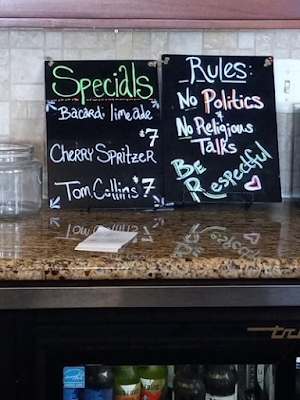 Specials
Bacardi limeade
$7
Cherry Spritzer
Tom Collins $7
Rules:
No Politics
&
No Religious
Talks
Be
Respectful